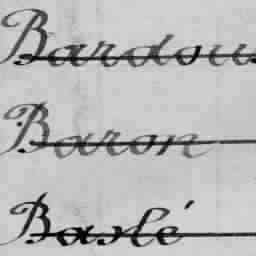 Bardou
Baron
Baslé